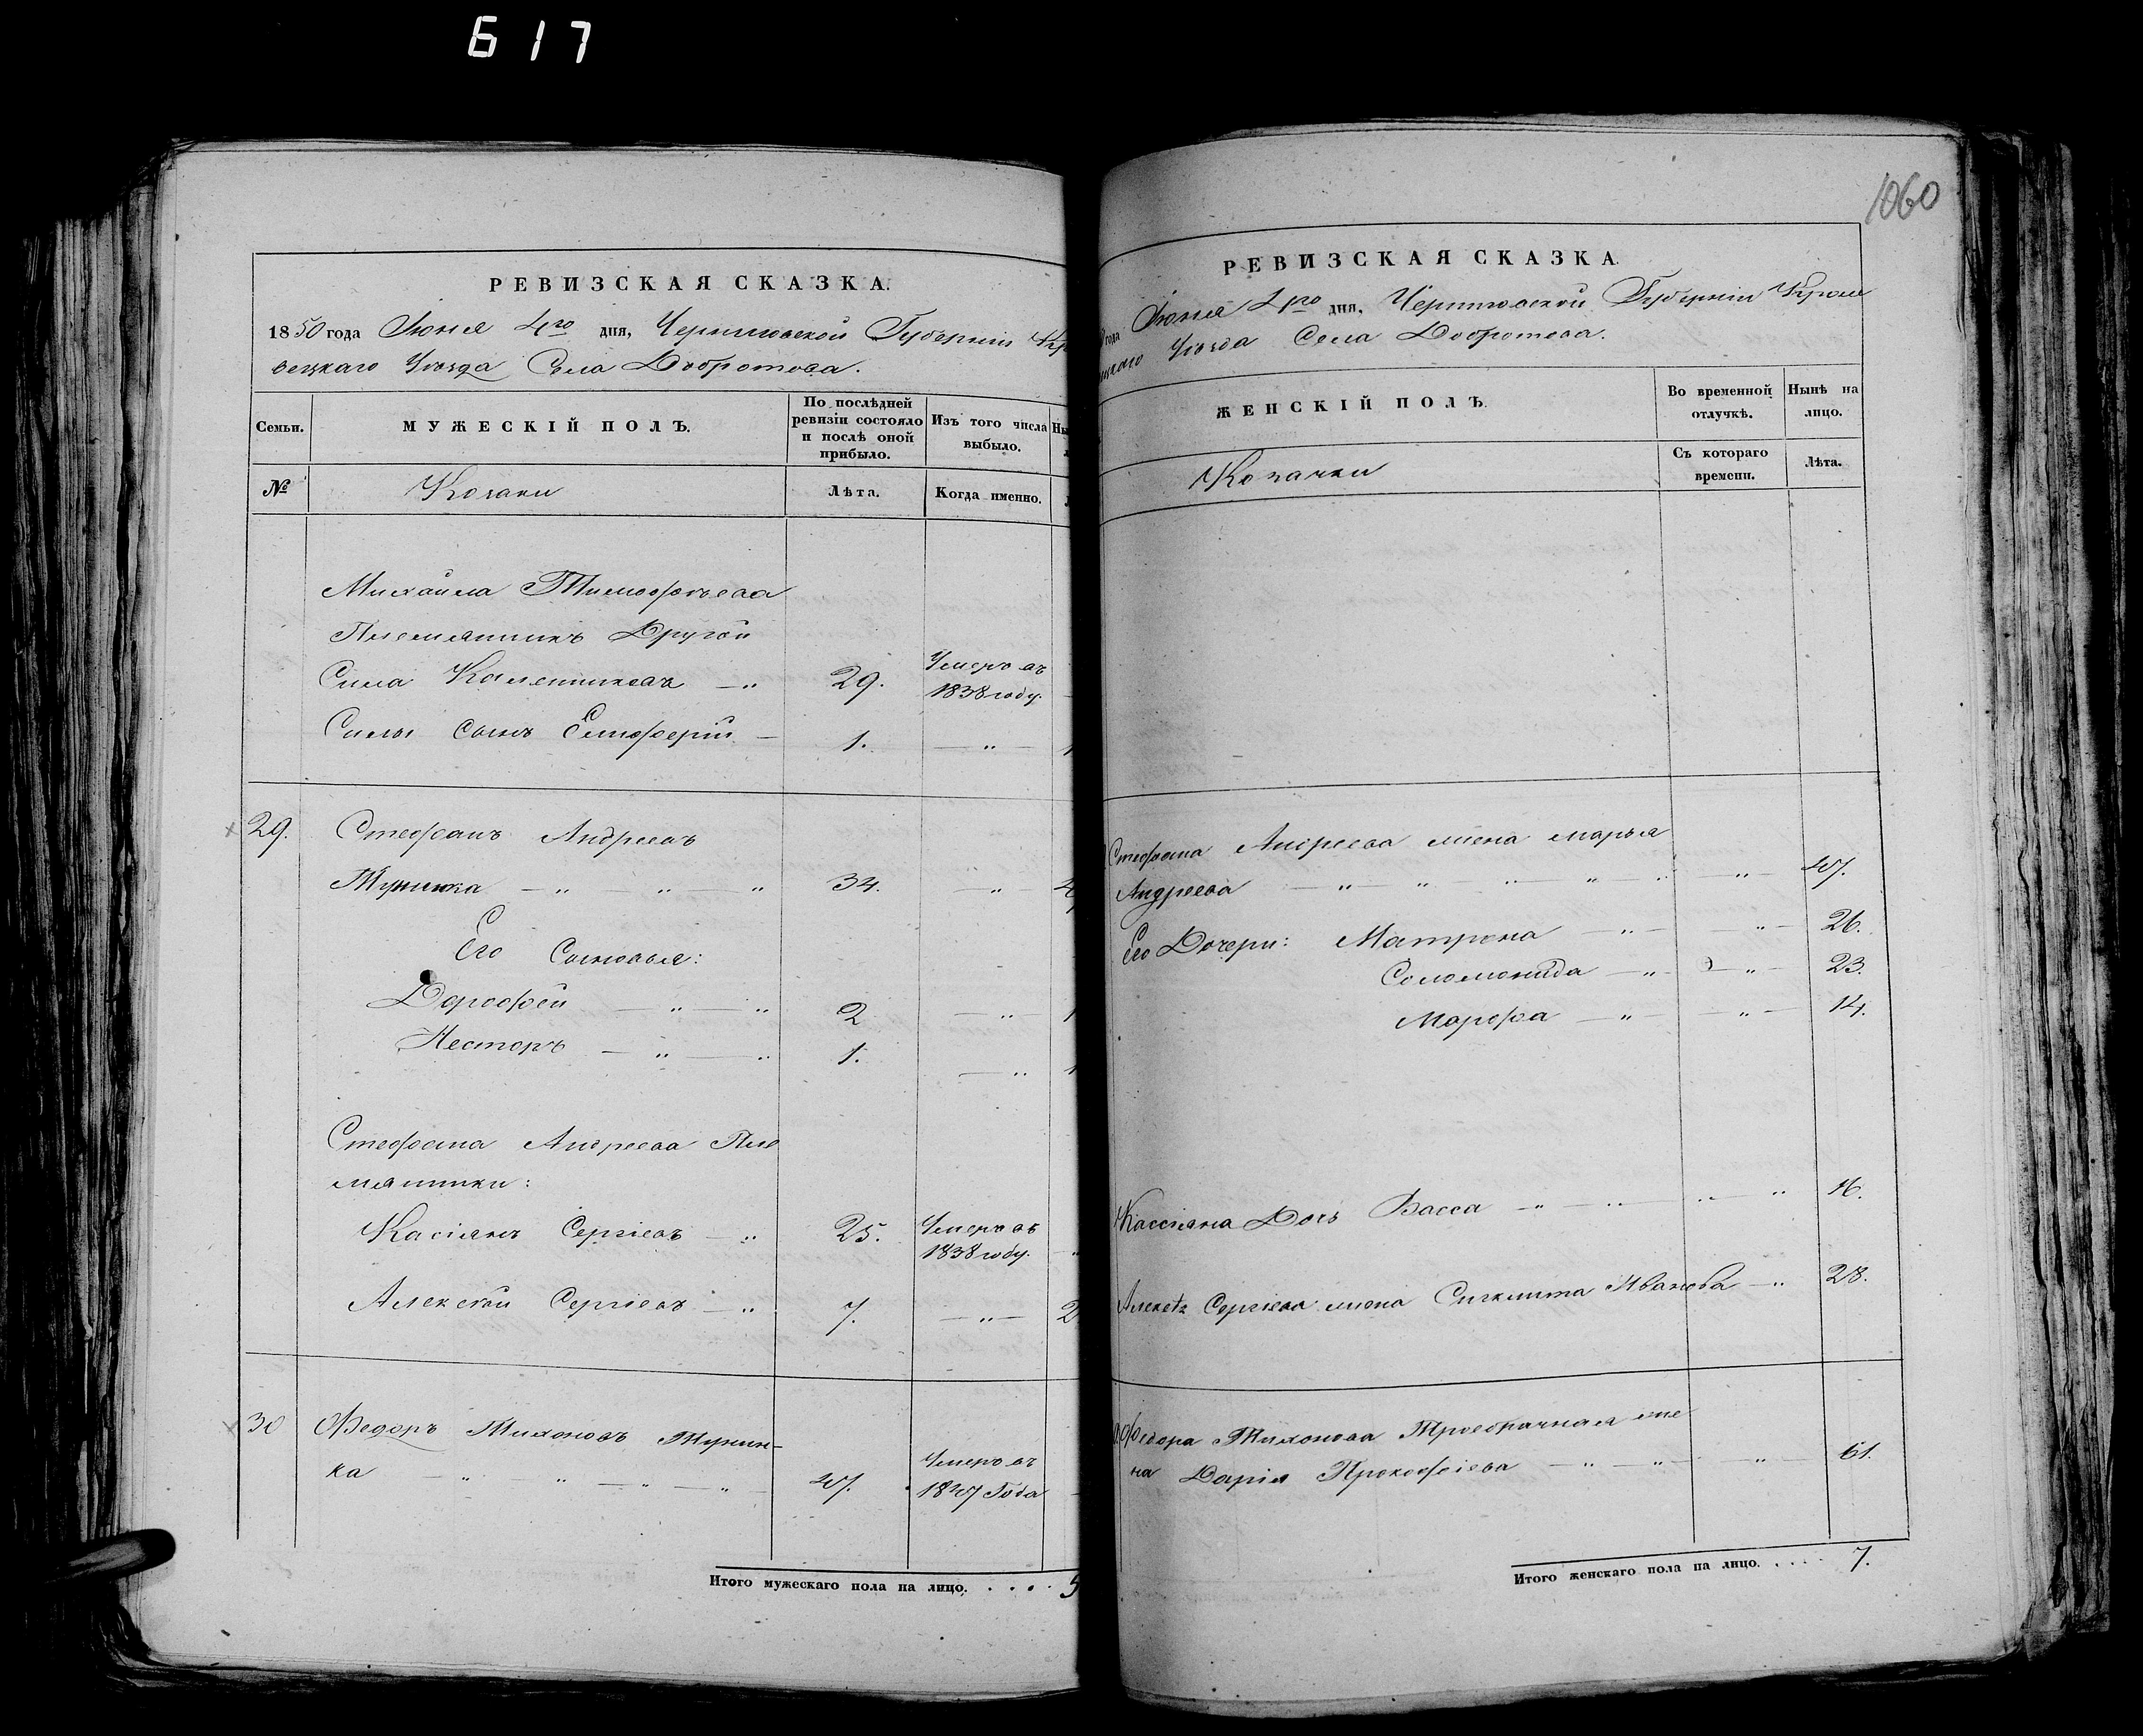 617
1060
РЕВИЗСКАЯ СКАЗКА.
1850 года Июня 4го дня, Черниговской Губерніи Кро
вецкаго Уѣзда Села Добротова.
Семьи.
МУЖЕСКІЙ ПОЛЪ.
По послѣдней
ревизіи состояло
и послѣ оной
прибыло.
Изъ того числа
выбыло.
№
Козаки
Лѣта.
Когда именно.
Михайла Тимофѣева
Племянникъ Другой
Сила Калениковъ — „ 29. Умеръ въ
1838 году.
Силы сынъ Елисферій — 1. — „ —
29. Стефанъ Андреевъ
— „ — „ — „ 34. — „ —
Его Сыновья:
Дорофей — „ — „ 2 — „ —
Несторъ — „ — „ 1. — „
Стефана Андреева Пле
мянники:
Касіянъ Сергіевъ — „ 25. Умеръ въ
1838 году.
Алексѣй Сергіевъ — „ 7. — „ —
30 Федоръ Тихоновъ
ка — „ „ — „ — „ — 47. Умеръ въ
1847 Года
Итого мужескаго пола на лицо. . . . . 5
РЕВИЗСКАЯ СКАЗКА.
года Июня 4го дня, Черниговской Губерніи Кроле
вецкаго Уѣзда Села Добротова.
ЖЕНСКІЙ ПОЛЪ.
Во временной
отлучкѣ.
Нынѣ на
лицо.
Козачки
Съ котораго
времени.
Лѣта.
Стефана Андреева жена Марья
Андреева — „ — „ — „ — „ — „ — „ — 47.
Его Дочери: Матрона — „ — „ — 26.
Соломонида — „ — „ — 23.
Марфа — „ — „ — 14.
Кассіяна Дочь Васса — „ — „ — „ — „ 16.
Алексѣя Сергіева жена Синклита Иванова — „ 28.
Федора Тихонова Троебрачная же
на Дарія Прокофіева — „ — „ — „ — 61.
Итого женскаго пола на лицо. . . . . 7.